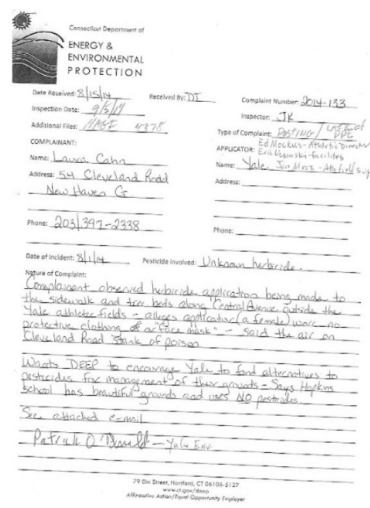 Connecticut Department of
ENERGY &
ENVIRONMENTAL
PROTECTION
Date Received: 8/15/14 Received By: DI Complaint Number: 2014-133
Inspection Date: 9/3/14 Inspector: JK
Additional Files: Type of Complaint: POSTING / PPE
COMPLAINANT: APPLICATOR: Ed - Athletic Director
Name: Laura Cahn Name: Yale
Address: 54 Cleveland Road Address:
New Haven Ct
Phone: 203/397-2338 Phone:
Date of Incident: 8/1/14 Pesticide Involved: Unknown herbicide.
Nature of Complaint:
Complainant observed herbicide application being made to
the sidewalk and tree beds along Central Avenue outside the
Yale athletic fields - alleges applicator (a female) wore no
protective clothing or a "face mask" - said the air on
Cleveland Road stank of poison.
Wants DEEP to encourage Yale to find alternatives to
pesticides for management of their grounds - Says Hopkins
School has beautiful grounds and uses NO pesticides.
See attached e-mail
Patrick O' - Yale Env.
79 Elm Street, Hartford, CT 06106-5127
www.ct.gov/deep
Affirmative Action/Equal Opportunity Employer